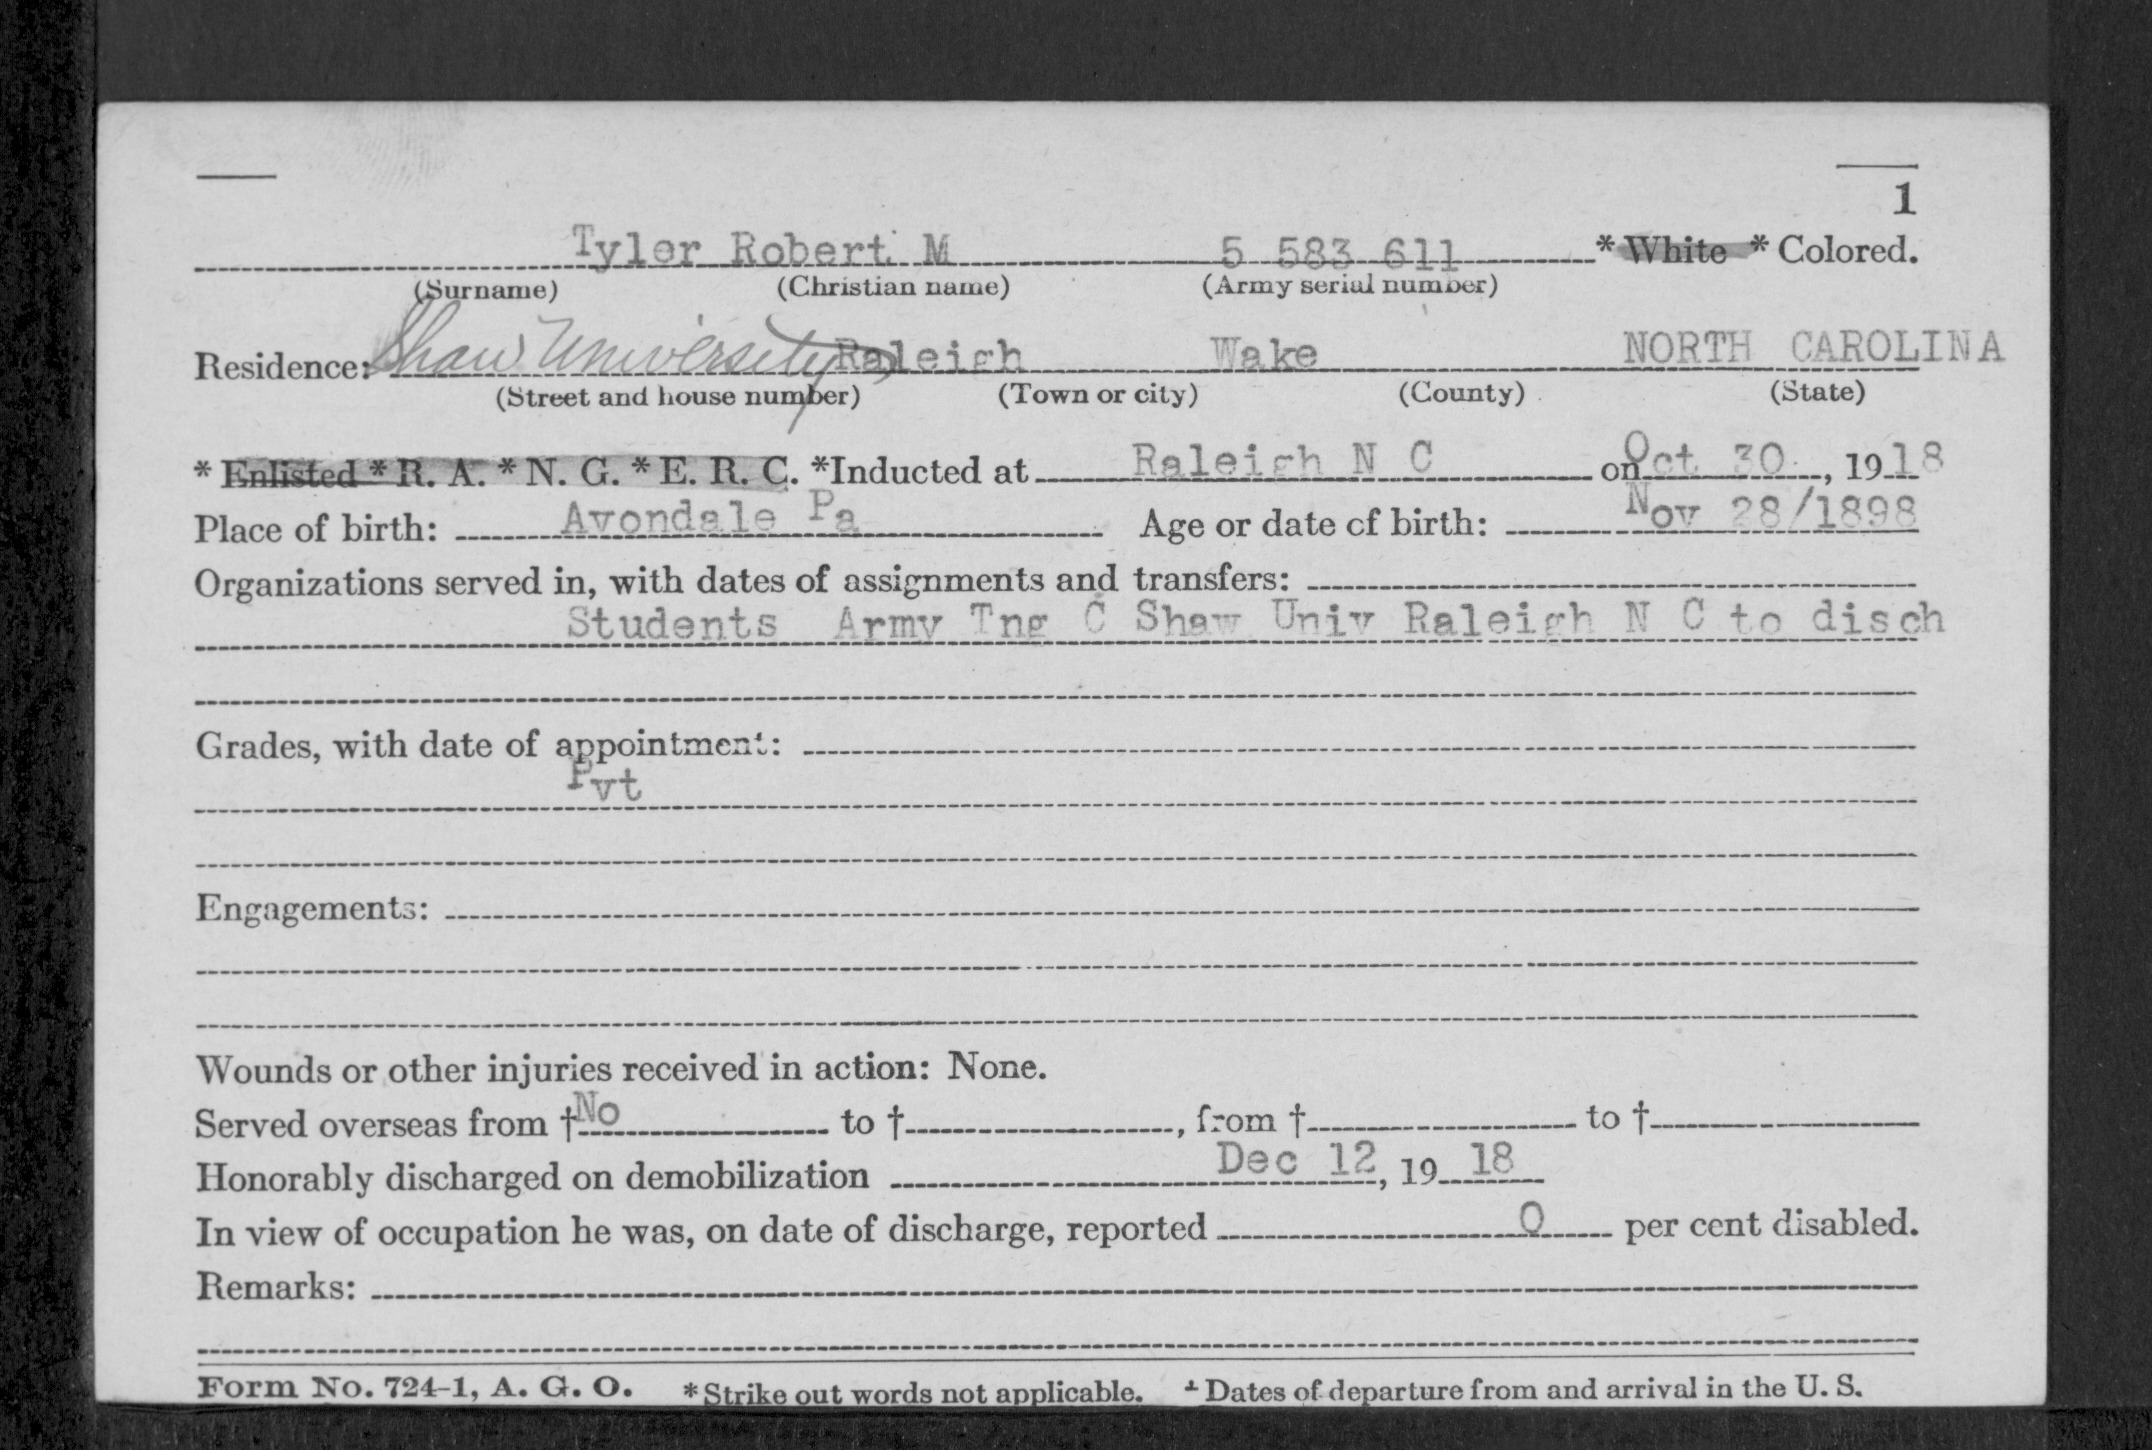 1
Tyler Robert M 5 583 611 * White * Colored.
(Surname) (Christian name) (Army serial number)
Residence: Shaw University Raleigh Wake NORTH CAROLINA
(Street and house number) (Town or city) (County) (State)
* Enlisted * R. A. * N. G. * E. R. C. *Inducted at Raleigh N C on Oct 30, 1918
Place of birth: Avondale Pa Age or date of birth: Nov 28/1898
Organizations served in, with dates of assignments and transfers:
Students Army Tng C Shaw Univ Raleigh N C to disch
Grades, with date of appointment:
Pvt
Engagements:
Wounds or other injuries received in action: None.
Served overseas from † No to †, from † to †
Honorably discharged on demobilization Dec 12, 19 18
In view of occupation he was, on date of discharge, reported 0 per cent disabled.
Remarks:
Form No. 724-1, A. G. O. *Strike out words not applicable. † Dates of departure from and arrival in the U. S.